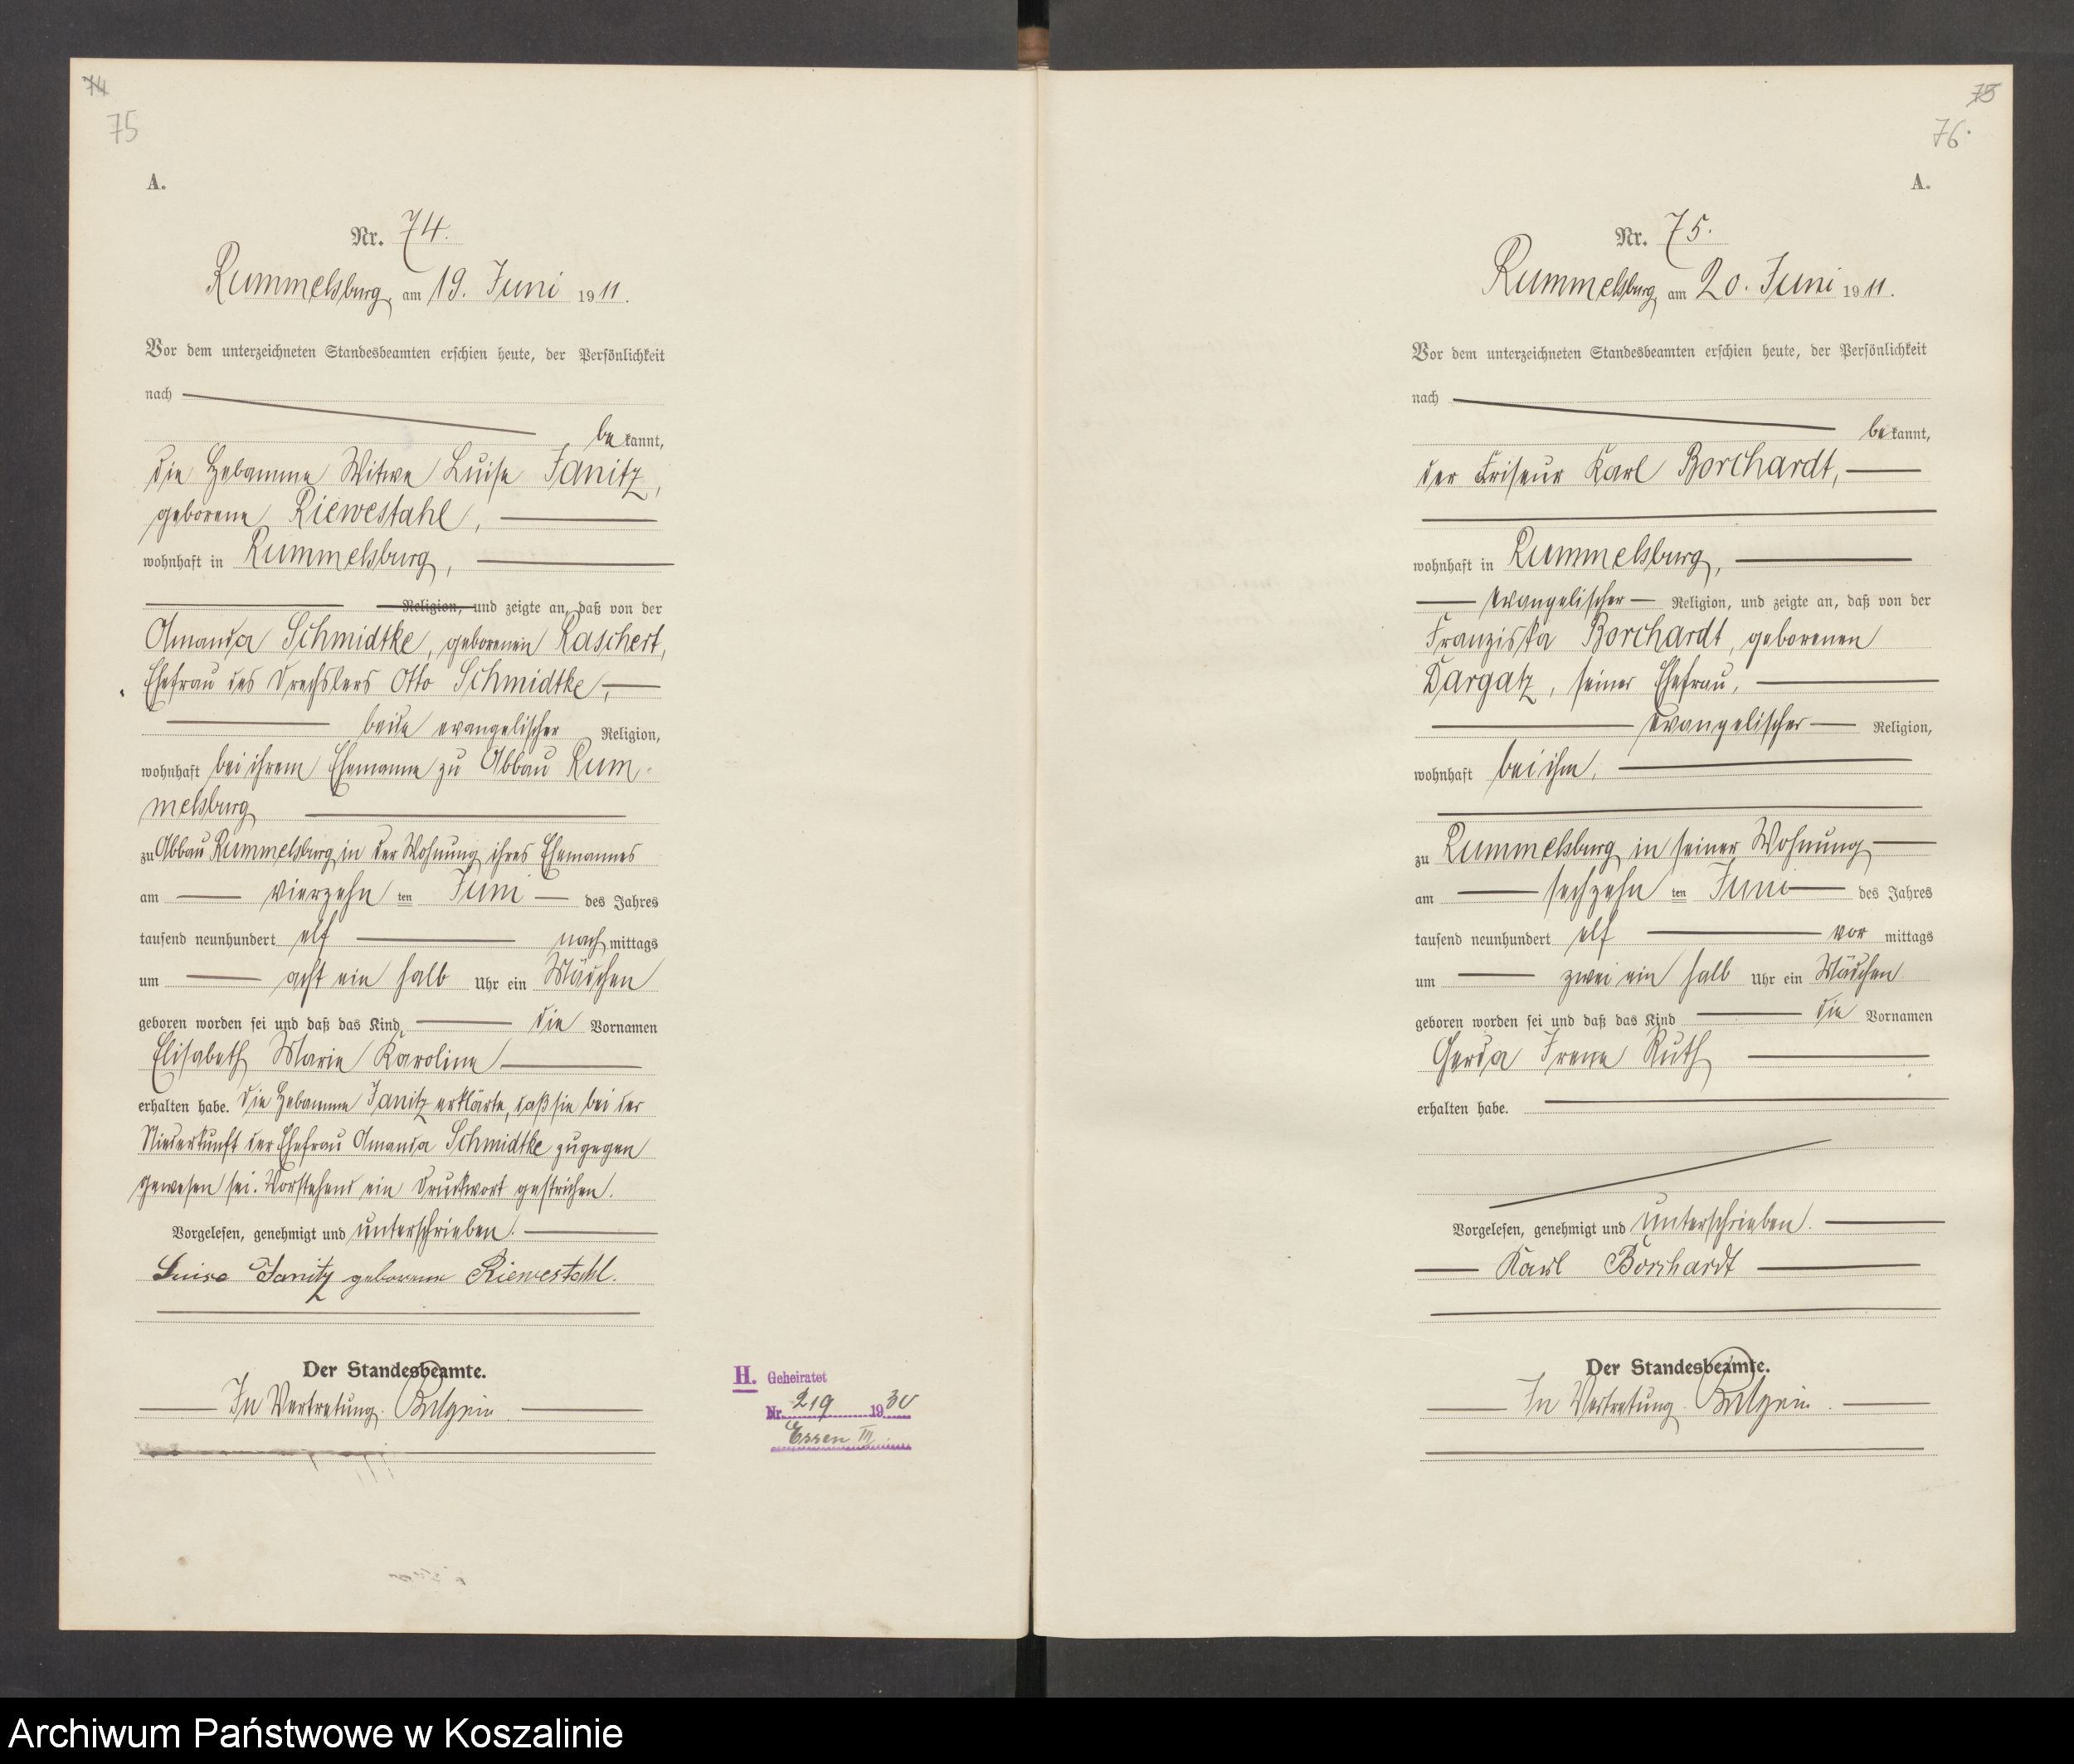 74
75
A.
Nr. 74.
Rummelsburg, am 19. Juni 1911.
Vor dem unterzeichneten Standesbeamten erschien heute, der Persönlichkeit
nach
bekannt,
die Hebamme Witwe Luise Janitz,
geborene Riewestahl,
wohnhaft in Rummelsburg,
Religion, und zeigte an, daß von der
Amanda Schmidtke, geborenen Raschert,
Ehefrau des Drechslers Otto Schmidtke,
beide evangelischer Religion,
wohnhaft bei ihrem Ehemanne zu Abbau Rum-
melsburg
zu Abbau Rummelsburg in der Wohnung ihres Ehemannes
am vierzehnten Juni des Jahres
tausend neunhundert elf nachmittags
um acht ein halb Uhr ein Mädchen
geboren worden sei und daß das Kind, die Vornamen
Elisabeth Marie Karoline
erhalten habe. Die Hebamme Janitz erklärte, daß sie bei der
Niederkunft der Ehefrau Amanda Schmidtke zugegen
gewesen sei. Vorstehend ein Druckwort gestrichen.
Vorgelesen, genehmigt und unterschrieben.
Luise Janitz geborene Riewestahl.
Der Standesbeamte.
In Vertretung.
H. Geheiratet
Nr. 219 1930
Essen III
75
76.
A.
Nr. 75.
Rummelsburg, am 20. Juni 1911.
Vor dem unterzeichneten Standesbeamten erschien heute, der Persönlichkeit
nach
bekannt,
der Friseur Karl Borchardt,
wohnhaft in Rummelsburg,
evangelischer Religion, und zeigte an, daß von der
Franziska Borchardt, geborenen
Dargatz, seiner Ehefrau,
evangelischer Religion,
wohnhaft bei ihm,
zu Rummelsburg in seiner Wohnung
am sechzehnten Juni des Jahres
tausend neunhundert elf vormittags
um zwei ein halb Uhr ein Mädchen
geboren worden sei und daß das Kind die Vornamen
Gerda Irene Ruth
erhalten habe.
Vorgelesen, genehmigt und unterschrieben.
Karl Borchardt
Der Standesbeamte.
In Vertretung.
Archiwum Państwowe w Koszalinie